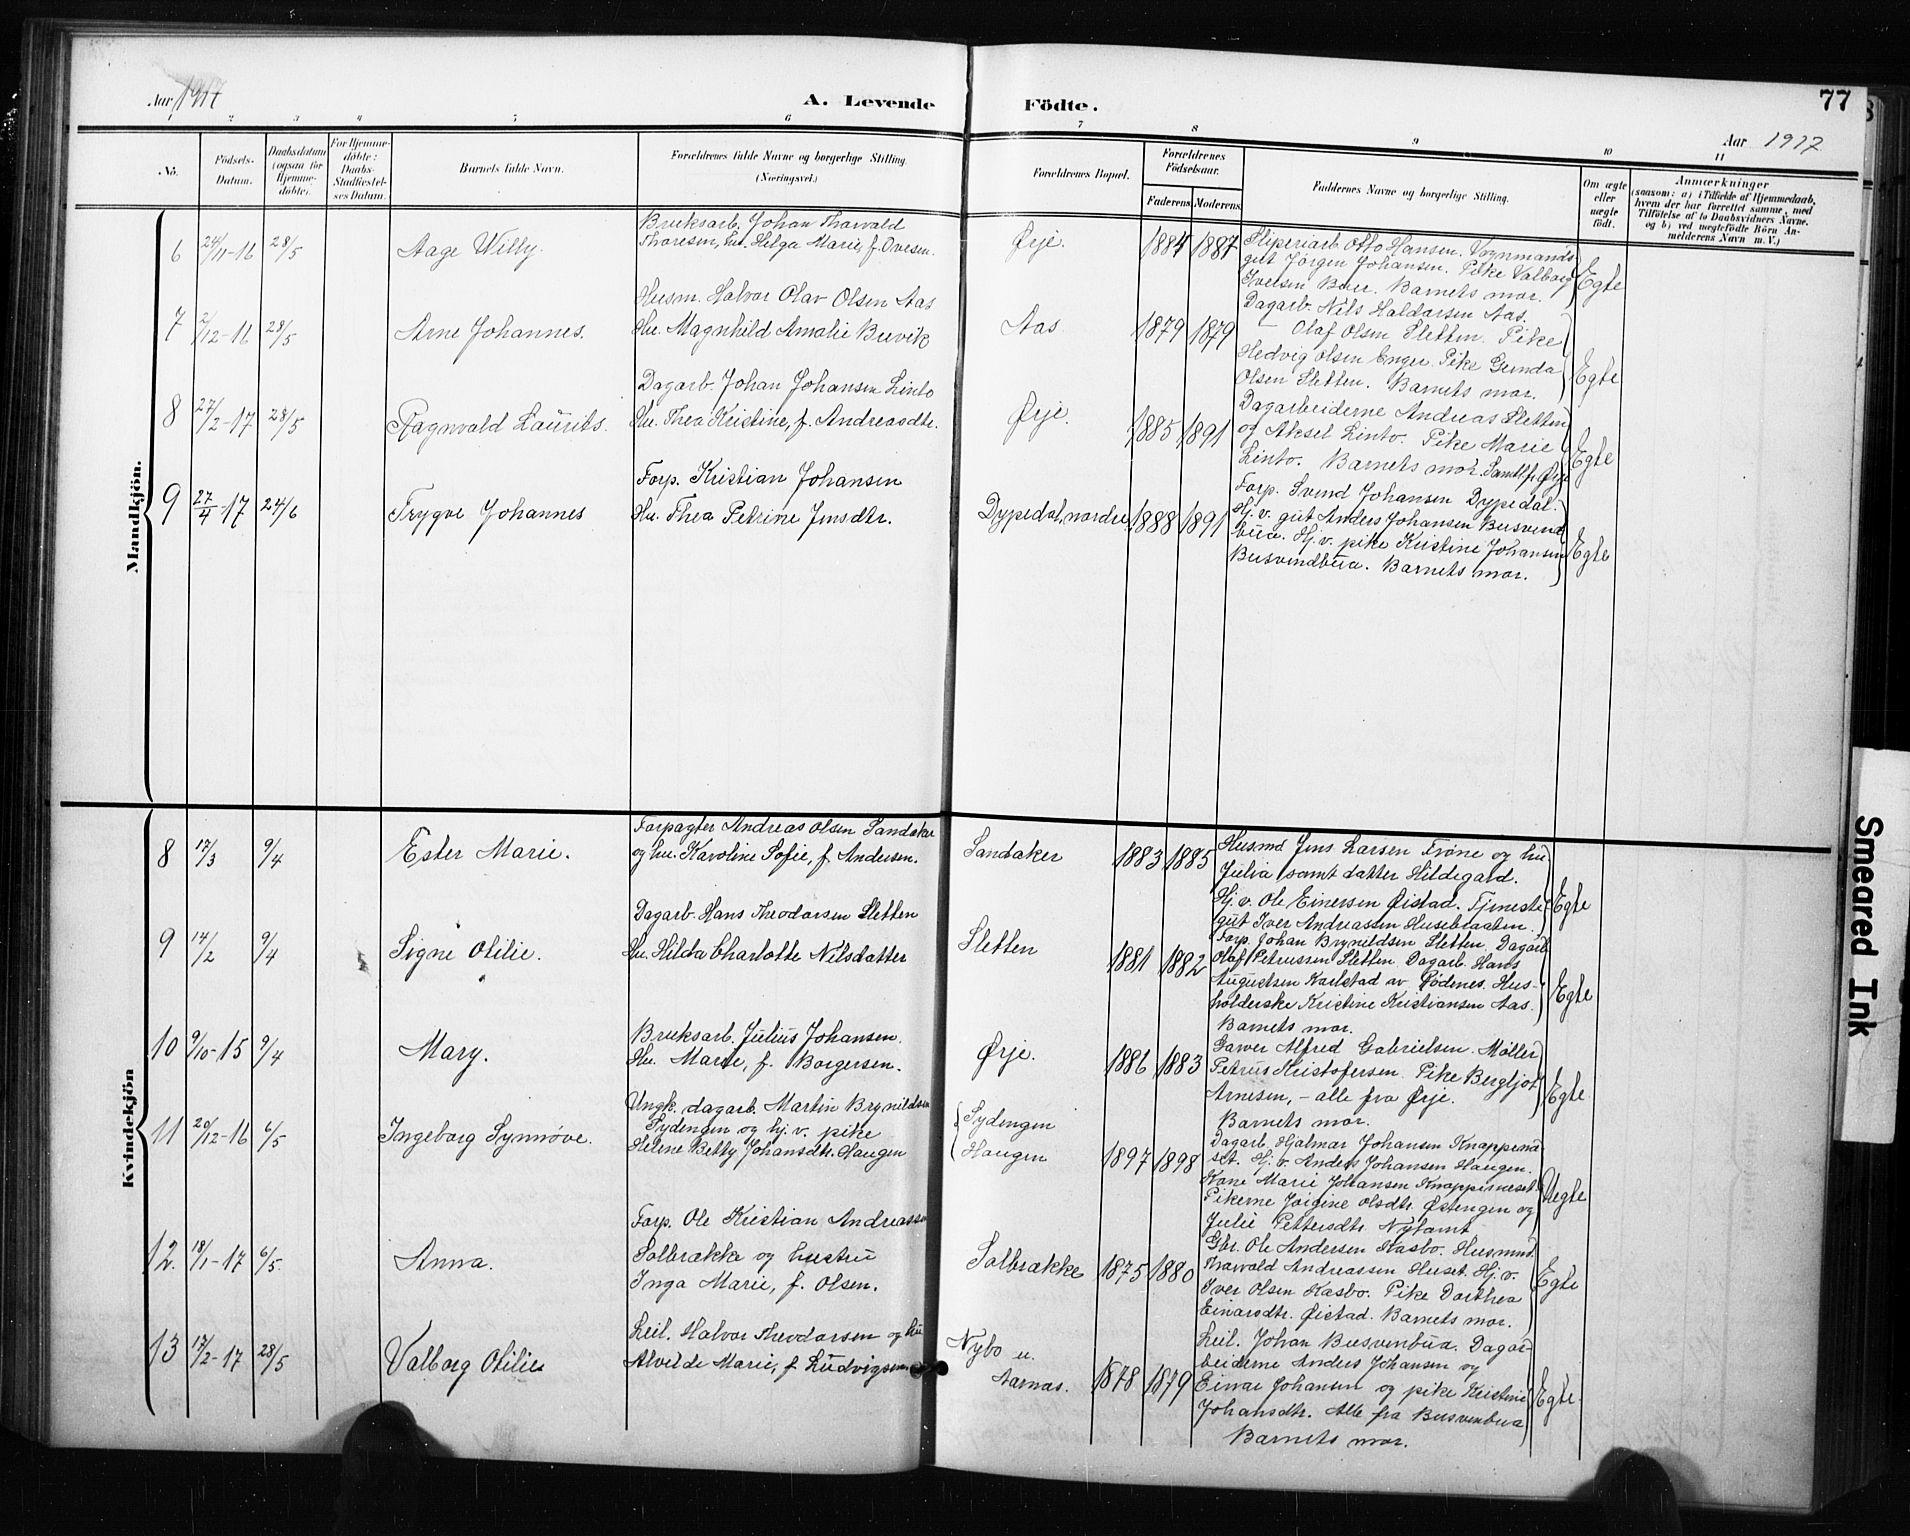 Aar 1917
A. Levende Födte.
77
Aar 1917
1 2 3 4 5 6 7 8 9 10 11
No.
Födsels-
Datum.
Daabsdatum
(ogsaa for
Hjemme-
döbte).
For Hjemme-
döbte:
Daabs-
Stadfæstel-
ses Datum.
Barnets fulde Navn.
Forældrenes fulde Navne og borgerlige Stilling.
(Næringsvei.)
Forældrenes Bopæl.
Forældrenes
Födselsaar.
Faderens. Moderens.
Faddernes Navne og borgerlige Stilling.
Om ægte
eller
uægte
födt.
Anmærkninger
(saasom: a) i Tilfælde af Hjemmedaab,
hvem der har forrettet samme, med
Tilföielse af to Daabsvidners Navne,
og b) ved uægtefödte Börn An-
melderens Navn m. V.)
Mandkjön.
6 24/11-16 28/5
Aage Willy.
Bruksarb. Johan Thorvald
Thoresen, hu. Helga Marie f. Ovesen.
Ørje. 1884 1887
Sliperiarb. Otto Hansen. Vognmands
gut Jørgen Johansen. Pike Valborg
Ivelsen Buer. Barnets mor.
Egte
7 2/12-16 28/5
Arne Johannes.
Husm. Halvor Olav Olsen Aas
Hu. Magnhild Amalie Buvik
Aas 1879 1879
Dagarb. Nils Haldorsen Aas.
— Olaf Olsen Sletten. Pike
Hedvig Olsen Enger. Pike Gunda
Olsen Sletten. Barnets mor.
Egte
8 27/2-17 28/5
Ragnvald Laurits.
Dagarb. Johan Johansen Linto
Hu. Thea Kristine, f. Andreasdtr.
Ørje. 1885 1891
Dagarbeiderne Andreas Sletten
og Aksel Linto. Pike Marie
Linto. Barnets mor. Samtl. fr. Ørje
Egte
9 27/4-17 24/6
Trygve Johannes
Forp. Kristian Johansen
Hu. Thea Petrine Jensdtr.
Dypedal, nordre 1888 1891
Forp. Svend Johansen Dypedal.
Hj. v. gut Anders Johansen Busvend
bua. Hj. v. pike Kristine Johansen
Busvendbua. Barnets mor.
Egte
Kvindekjön
8 17/3 9/4
Ester Marie.
Forpagter Andreas Olsen Sandaker
og hu. Karoline Sofie, f. Andersen.
Sandaker 1883 1885
Husmd Jens Larsen Trøne og hu.
Julia samt datter Hildegard.
Hj. v. Ole Einersen Øistad. Tjeneste-
gut Iver Andreassen Husebraaten.
Egte
9 14/2 9/4
Signe Otilie.
Dagarb. Hans Theodorsen Sletten
Hu. Hilda Charlotte Nilsdatter
Sletten 1881 1882
Forp. Johan Brynildsen Sletten. Dagarb.
Olaf Petrussen Sletten. Dagarb. Hans
Augustsen Karlstad av Rødenes. Hus-
holderske Kristine Kristiansen Aas.
Barnets mor.
Egte
10 9/10-15 9/4
Mary.
Bruksarb. Julius Johansen.
Hu. Marie, f. Borgersen.
Ørje. 1886 1883
Garver Alfred Gabrielsen. Møller
Petrus Kristofersen. Pike Bergljot
Arnesen, - alle fra Ørje.
Barnets mor.
Egte
11 20/12-16 6/5
Ingeborg Synnøve.
Ungk. dagarb. Martin Brynildsen
Sydengen og hj. v. pike
Helene Betty Johansdtr. Haugen
Sydengen
Haugen
1897 1898
Dagarb. Hjalmar Johansen Knappernæ
set. Hj. v. Anders Johansen Haugen.
Kone Marie Johansen Knapperneset.
Pikerne Jørgine Olsdtr. Østengen og
Julie Pettersdtr. Nytomt
Uegte
12. 18/1-17 6/5.
Anna.
Forp. Ole Kristian Andreassen
Solbrække og hustru
Inga Marie, f. Olsen.
Solbrække 1875 1880
Gbr. Ole Andersen Kasbo. Husmnd.
Thorvald Andreassen Huset. Hj. v.
Iver Olsen Kasbo. Pike Dorthea
Einarsdtr. Øistad. Barnets mor.
Egte
13 17/2-17 28/5
Valborg Otilie
Leil. Halvor Theodorsen og hu
Alvilde Marie, f. Ludvigsen
Nybo u.
Aarnæs.
1878 1879
Leil. Johan Busvenbua. Dagar-
beiderne Anders Johansen og
Einar Johansen og pike Kristine
Johansdtr. Alle fra Busvenbua
Barnets mor.
Egte.
Smeared Ink